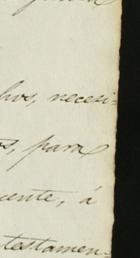 hos, necesi-
os, para
cuente, á
testamen-